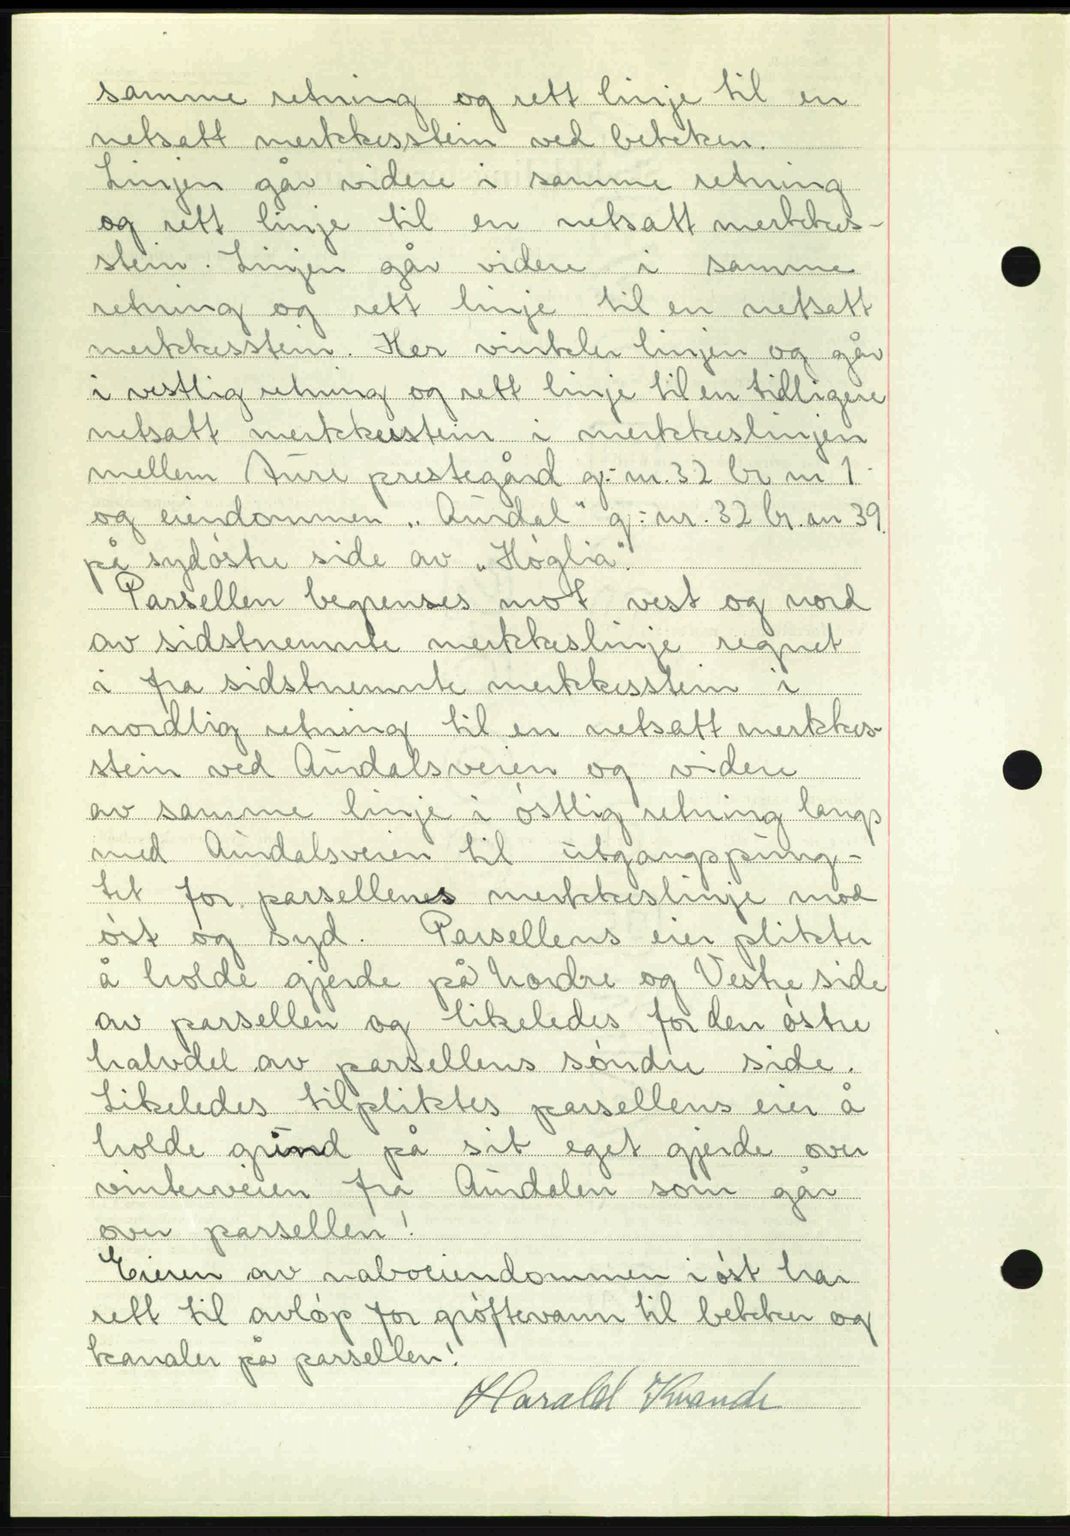 samme retning og rett linje til en
netsatt merkkesstein ved bekken.
Linjen går videre i samme retning
og rett linje til en netsatt merkkes-
stein. Linjen går videre i samme
retning og rett linje til en netsatt
merkkesstein. Her vinkler linjen og går
i vestlig retning og rett linje til en tidligere
netsatt merkkesstein i merkkeslinjen
mellem Aure prestegård g:nr. 32 br nr 1
og eiendommen „Aurdal" g:nr. 32 br. nr 39.
på sydóstre side av „Hóglia".
Parsellen begrenses mot vest og nord
av sidstnemnte merkkeslinje regnet
i fra sidstnemnte merkkesstein i
nordlig retning til en netsatt merkkes-
stein ved Aurdalsveien og videre
av samme linje i óstlig retning langs
med Aurdalsveien til utgangppung-
tet for parsellenes merkkeslinje mod
óst og syd. Parsellens eier plikter
å holde gjerde på Nordre og Vestre side
av parsellen og likeledes for den óstre
halvdel av parsellens sóndre side.
Likeledes tilpliktes parsellens eier å
holde grind på sit eget gjerde over
vinterveien fra Aurdalen som går
over parsellen!
Eieren av naboeiendommen i óst har
rett til avlóp for gróftevann til bekker og
kanaler på parsellen!
Harald Kvande